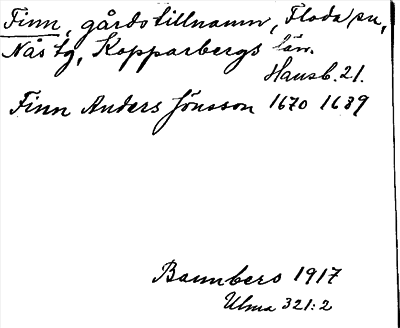 Finn, gårdstillnamn, Floda sn,
Nås tg, Kopparbergs län.
Hausb. 21.
Finn Anders Jönsson 1670 1639
Bannbers 1917
Ulma 321:2